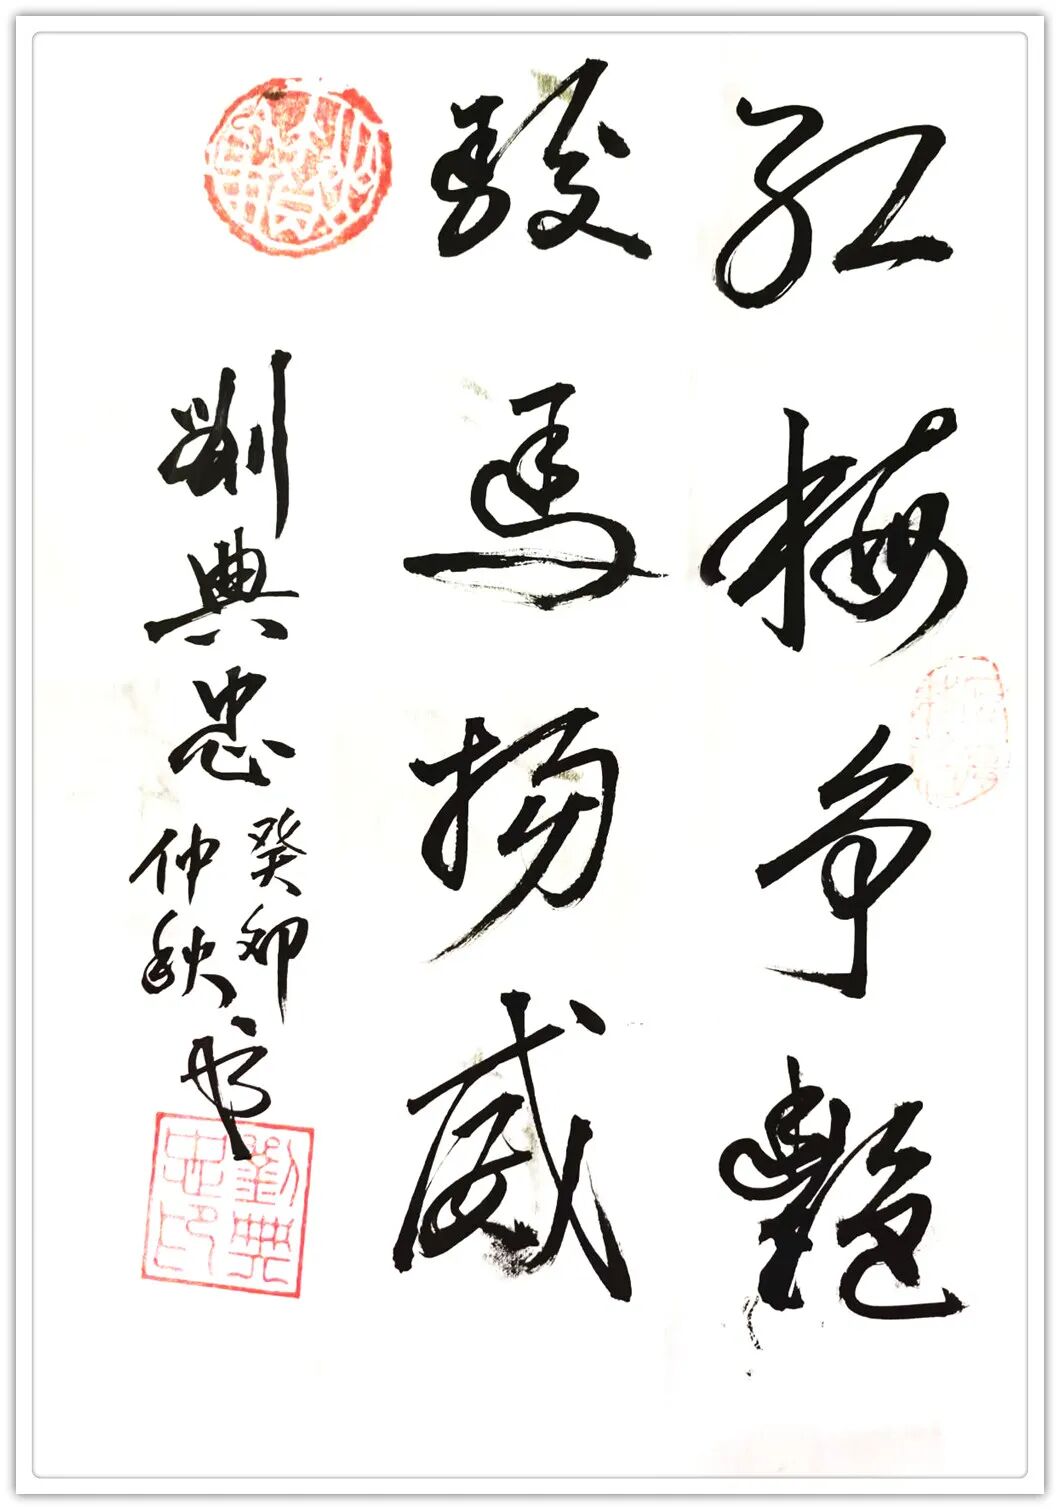 红梅争艷
骏马扬威
劉典忠
癸卯
仲秋书
劉典忠印